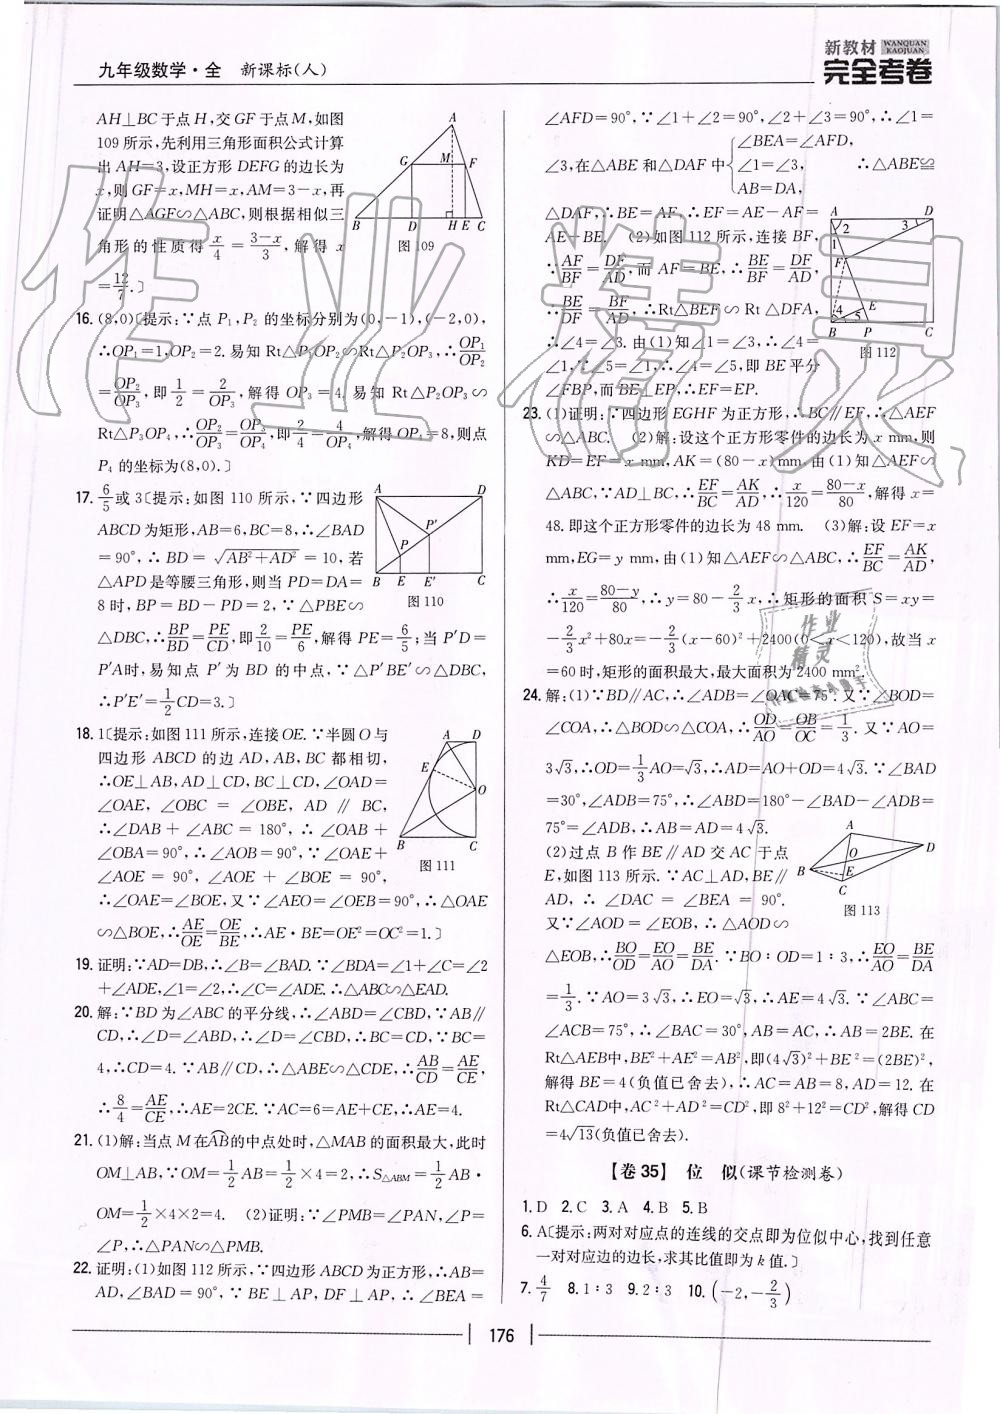 九年级数学·全 新课标(人)
新教材 WANQUAN KAOJUAN
完全考卷
AH⊥BC于点H,交GF于点M,如图
109所示,先利用三角形面积公式计算
出AH=3,设正方形DEFG的边长为
x,则GF=x,MH=x,AM=3-x,再
证明△AGF∽△ABC,则根据相似三
角形的性质得x/4=(3-x)/3,解得x
=12/7.〕
A G M F B D H E C
图109
16.(8,0)〔提示:∵点P₁,P₂的坐标分别为(0,-1),(-2,0),
∴OP₁=1,OP₂=2.易知Rt△P₁OP₂∽Rt△P₂OP₃,∴OP₁/OP₂
=OP₂/OP₃,即1/2=2/OP₃,解得OP₃=4.易知Rt△P₂OP₃∽
Rt△P₃OP₄,∴OP₂/OP₃=OP₃/OP₄,即2/4=4/OP₄,解得OP₄=8,则点
P₄的坐标为(8,0).〕
17.6/5或3〔提示:如图110所示,∵四边形
ABCD为矩形,AB=6,BC=8,∴∠BAD
=90°,∴BD=√(AB²+AD²)=10,若
△APD是等腰三角形,则当PD=DA=
8时,BP=BD-PD=2,∵△PBE∽
△DBC,∴BP/BD=PE/CD,即2/10=PE/6,解得PE=6/5;当P′D=
P′A时,易知点P′为BD的中点,∵△P′BE′∽△DBC,
∴P′E′=1/2CD=3.〕
A D P′ P B E E′ C
图110
18.1〔提示:如图111所示,连接OE.∵半圆O与
四边形ABCD的边AD,AB,BC都相切,
∴OE⊥AB,AD⊥CD,BC⊥CD,∠OAD=
∠OAE,∠OBC=∠OBE,AD∥BC,
∴∠DAB+∠ABC=180°,∴∠OAB+
∠OBA=90°,∴∠AOB=90°,∵∠OAE+
∠AOE=90°,∠AOE+∠BOE=90°,
∴∠OAE=∠BOE,又∵∠AEO=∠OEB=90°,∴△OAE
∽△BOE,∴AE/OE=OE/BE,∴AE·BE=OE²=OC²=1.〕
A D E O B C
图111
19.证明:∵AD=DB,∴∠B=∠BAD.∵∠BDA=∠1+∠C=∠2
+∠ADE,∠1=∠2,∴∠C=∠ADE.∴△ABC∽△EAD.
20.解:∵BD为∠ABC的平分线,∴∠ABD=∠CBD,∵AB∥
CD,∴∠D=∠ABD,∴∠D=∠CBD,∴BC=CD,∵BC=
4,∴CD=4.∵AB∥CD,∴△ABE∽△CDE,∴AB/CD=AE/CE,
∴8/4=AE/CE,∴AE=2CE.∵AC=6=AE+CE,∴AE=4.
21.(1)解:当点M在AB的中点处时,△MAB的面积最大,此时
OM⊥AB,∵OM=1/2AB=1/2×4=2,∴S△ABM=1/2AB·
OM=1/2×4×2=4. (2)证明:∵∠PMB=∠PAN,∠P=
∠P,∴△PAN∽△PMB.
22.证明:(1)如图112所示,∵四边形ABCD为正方形,∴AB=
AD,∠BAD=90°,∵BE⊥AP,DF⊥AP,∴∠BEA=
∠AFD=90°,∵∠1+∠2=90°,∠2+∠3=90°,∴∠1=
∠3,在△ABE和△DAF中{∠BEA=∠AFD, ∠1=∠3, AB=DA, ∴△ABE≌
△DAF,∴BE=AF,∴EF=AE-AF=
AE-BE. (2)如图112所示,连接BF,
∵AF/BF=DF/AD,而AF=BE,∴BE/BF=DF/AD,
∴BE/DF=BF/AD,∴Rt△BEF∽Rt△DFA,
∴∠4=∠3.由(1)知∠1=∠3,∴∠4=
∠1,∵∠5=∠1,∴∠4=∠5,即BE平分
∠FBP,而BE⊥EP,∴EF=EP.
A D 2 3 1 F 4 5 E B P C
图112
23.(1)证明:∵四边形EGHF为正方形,∴BC∥EF,∴△AEF
∽△ABC. (2)解:设这个正方形零件的边长为x mm,则
KD=EF=x mm,AK=(80-x)mm.由(1)知△AEF∽
△ABC,∵AD⊥BC,∴EF/BC=AK/AD,∴x/120=(80-x)/80,解得x=
48.即这个正方形零件的边长为48 mm. (3)解:设EF=x
mm,EG=y mm,由(1)知△AEF∽△ABC,∴EF/BC=AK/AD,
∴x/120=(80-y)/80,∴y=80-2/3x,∴矩形的面积S=xy=
-2/3x²+80x=-2/3(x-60)²+2400(0<x<120),故当x
=60时,矩形的面积最大,最大面积为2400 mm².
24.解:(1)∵BD∥AC,∴∠ADB=∠OAC=75°.又∵∠BOD=
∠COA,∴△BOD∽△COA,∴OD/AO=OB/OC=1/3.又∵AO=
3√3,∴OD=1/3AO=√3,∴AD=AO+OD=4√3.∵∠BAD
=30°,∠ADB=75°,∴∠ABD=180°-∠BAD-∠ADB=
75°=∠ADB,∴AB=AD=4√3.
(2)过点B作BE∥AD交AC于点
E,如图113所示.∵AC⊥AD,BE∥
AD,∴∠DAC=∠BEA=90°.
又∵∠AOD=∠EOB,∴△AOD∽
△EOB,∴BO/OD=EO/AO=BE/DA.∵BO∶OD=1∶3,∴EO/AO=BE/DA
=1/3.∵AO=3√3,∴EO=√3,∴AE=4√3.∵∠ABC=
∠ACB=75°,∴∠BAC=30°,AB=AC,∴AB=2BE.在
Rt△AEB中,BE²+AE²=AB²,即(4√3)²+BE²=(2BE)²,
解得BE=4(负值已舍去),∴AC=AB=8,AD=12.在
Rt△CAD中,AC²+AD²=CD²,即8²+12²=CD²,解得CD
=4√13(负值已舍去).
A O D B E C
图113
【卷35】 位 似(课节检测卷)
1.D 2.C 3.A 4.B 5.B
6.A〔提示:两对对应点的连线的交点即为位似中心,找到任意
一对对应边的边长,求其比值即为k值.〕
7.4/7 8.1∶3 9.2∶3 10.(-2,-2/3)
176
作业精灵
作业
精灵